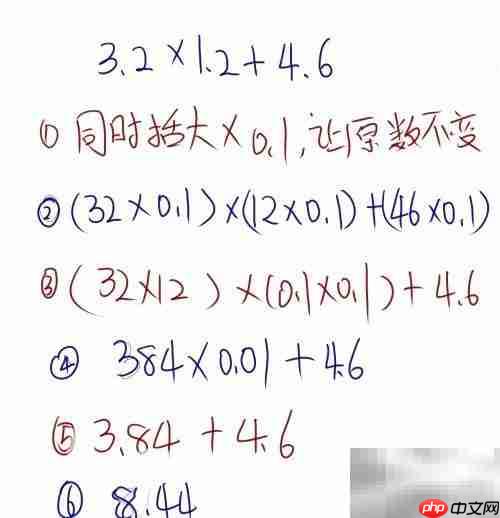 3.2×1.2+4.6
① 同时括大×0.1,让原数不变
②(32×0.1)×(12×0.1)+(46×0.1)
③(32×12)×(0.1×0.1)+4.6
④ 384×0.01+4.6
⑤ 3.84+4.6
⑥ 8.44
php 中文网